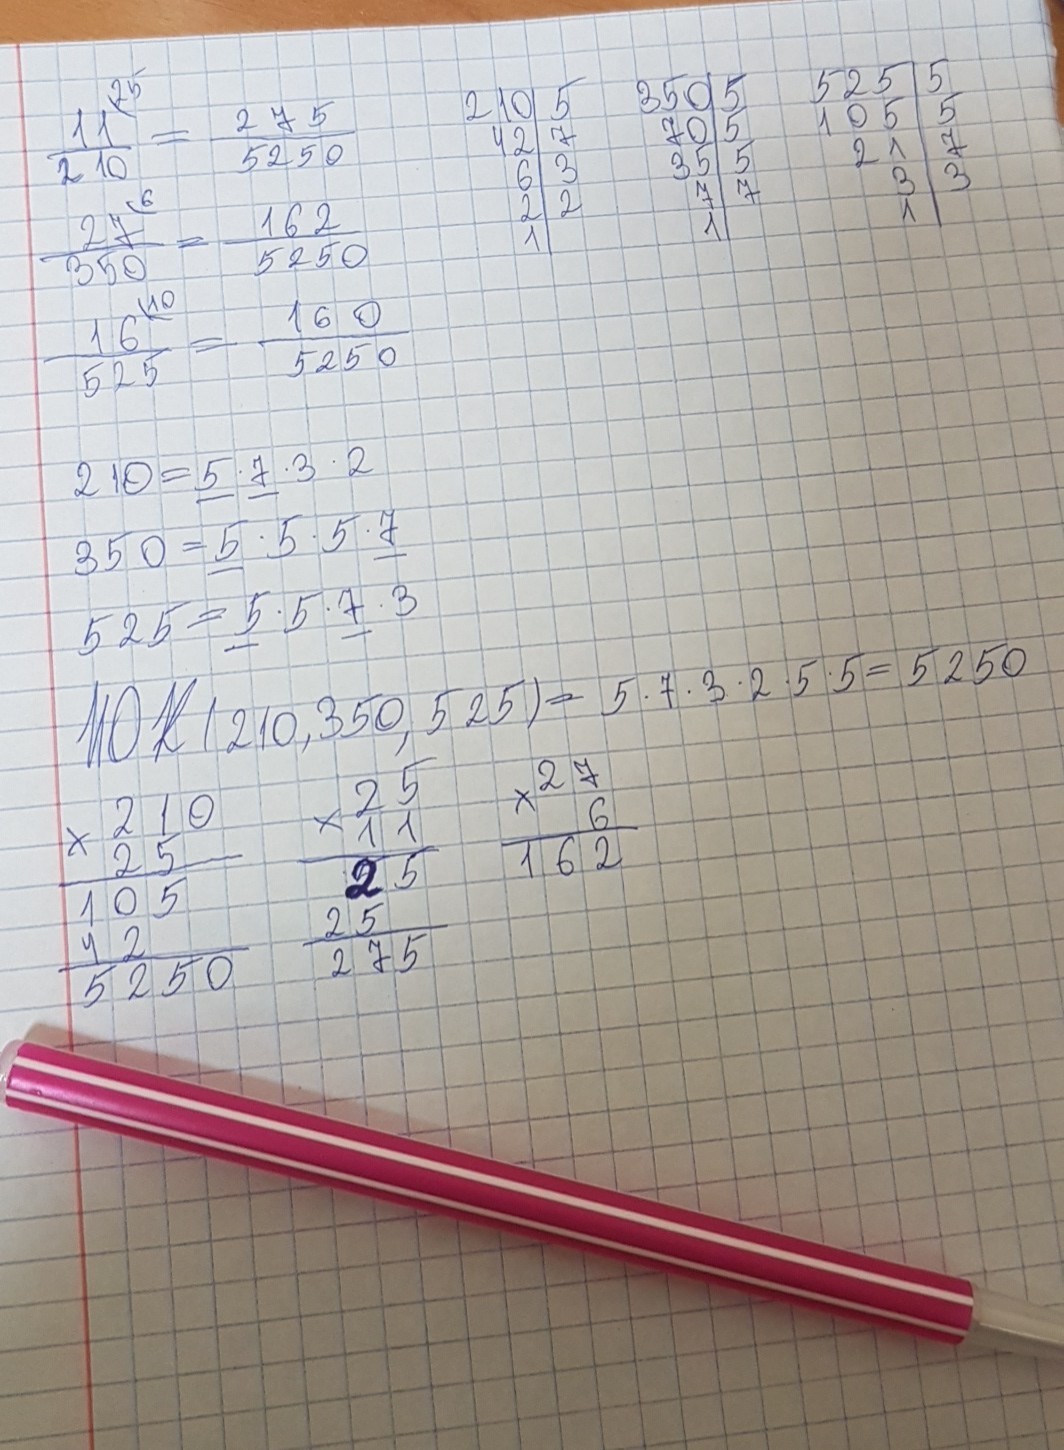 11⁽²⁵/210 = 275/5250
27⁽⁶/350 = 162/5250
16⁽¹⁰/525 = 160/5250
210|5
42|7
6|3
2|2
1|
350|5
70|5
35|5
7|7
1|
525|5
105|5
21|7
3|3
1|
210=5·7·3·2
350=5·5·5·7
525=5·5·7·3
НОК(210,350,525)=5·7·3·2·5·5=5250
×210
25
105
42
5250
×25
11
25
25
275
×27
6
162